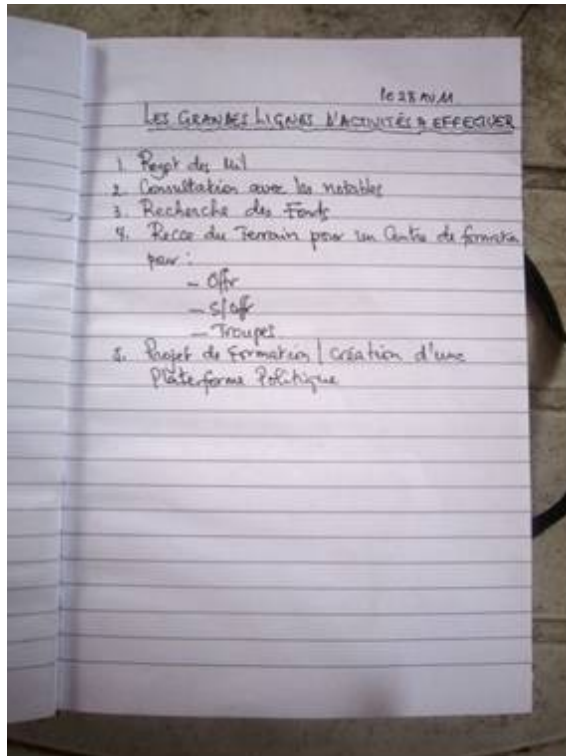 le 28 AV 11
LES GRANDES LIGNES D'ACTIVITÉS A EFFECTUER
1. Regpt des Mil
2. Consultation avec les notables
3. Recherche des Fonds
4. Recce du Terrain pour un Centre de formation
pour :
- Offr
- S/Offr
- Troupes
5. Projet de Formation / Création d'une
Plateforme Politique